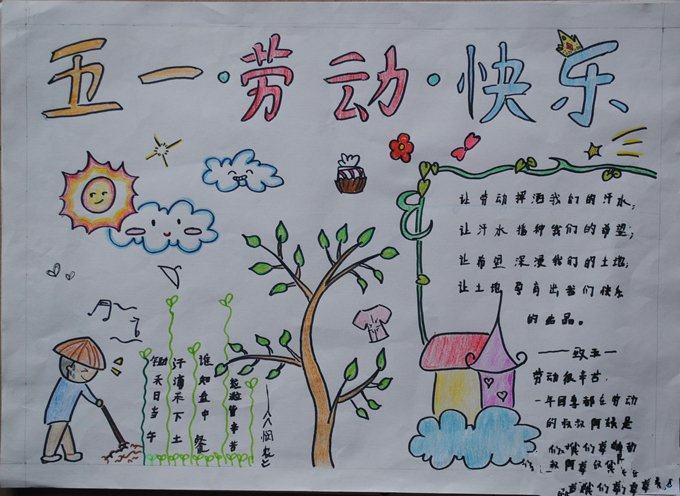 五一·劳动·快乐
让劳动挥洒我们的汗水;
让汗水播种我们的希望;
让希望深浸我们的土地;
让土地孕育出我们快乐
的出品。
——致五一
劳动很辛苦,
一年四季都在劳动
的叔叔阿姨是
锄禾日当午
汗滴禾下土
谁知盘中餐
粒粒皆辛苦
——《悯农》